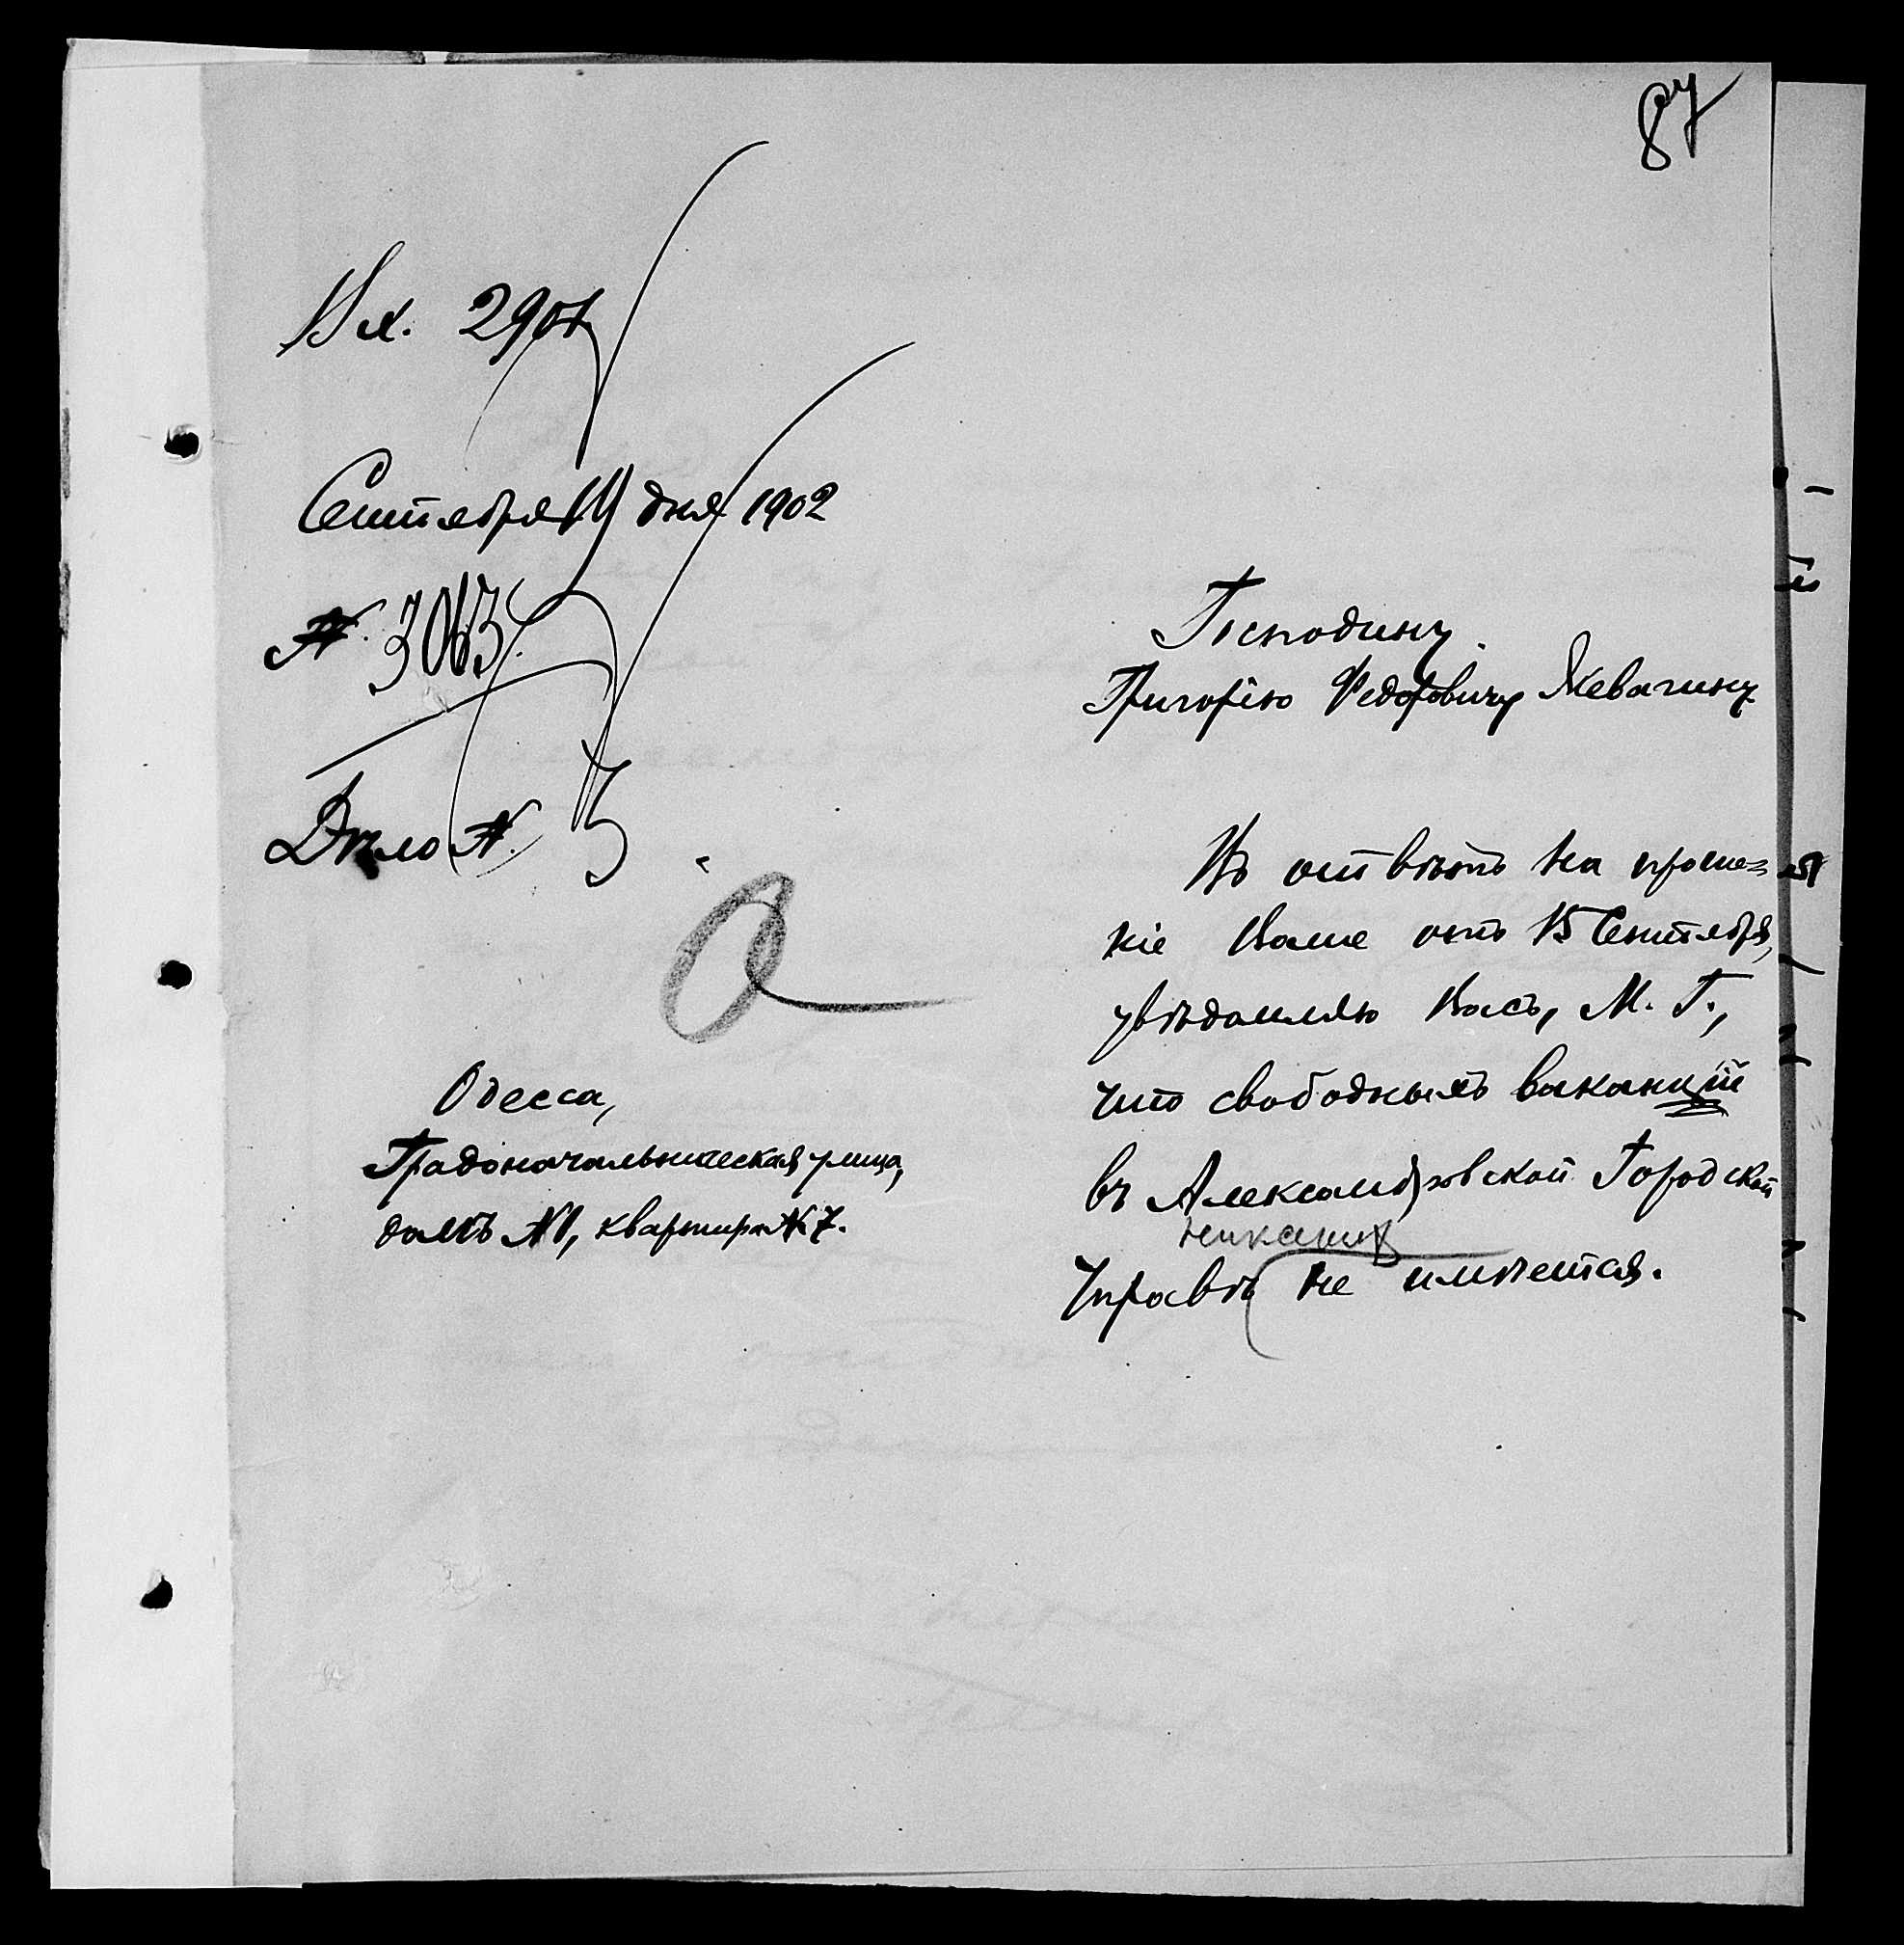 87
Вх. 2901
Сентября 19 дня 1902
№ 3063.
Дѣло № 3
Одесса,
Градоначальническая улица,
домъ №1, квартира №7.
Господину
Григорію Федоровичу Жевагину.
Въ отвѣтъ на проше=
ніе Ваше отъ 15 Сентября,
увѣдомляю Васъ, М. Г.,
что свободныхъ вакансій
въ Александровской Городской
никакихъ
Управѣ не имѣется.